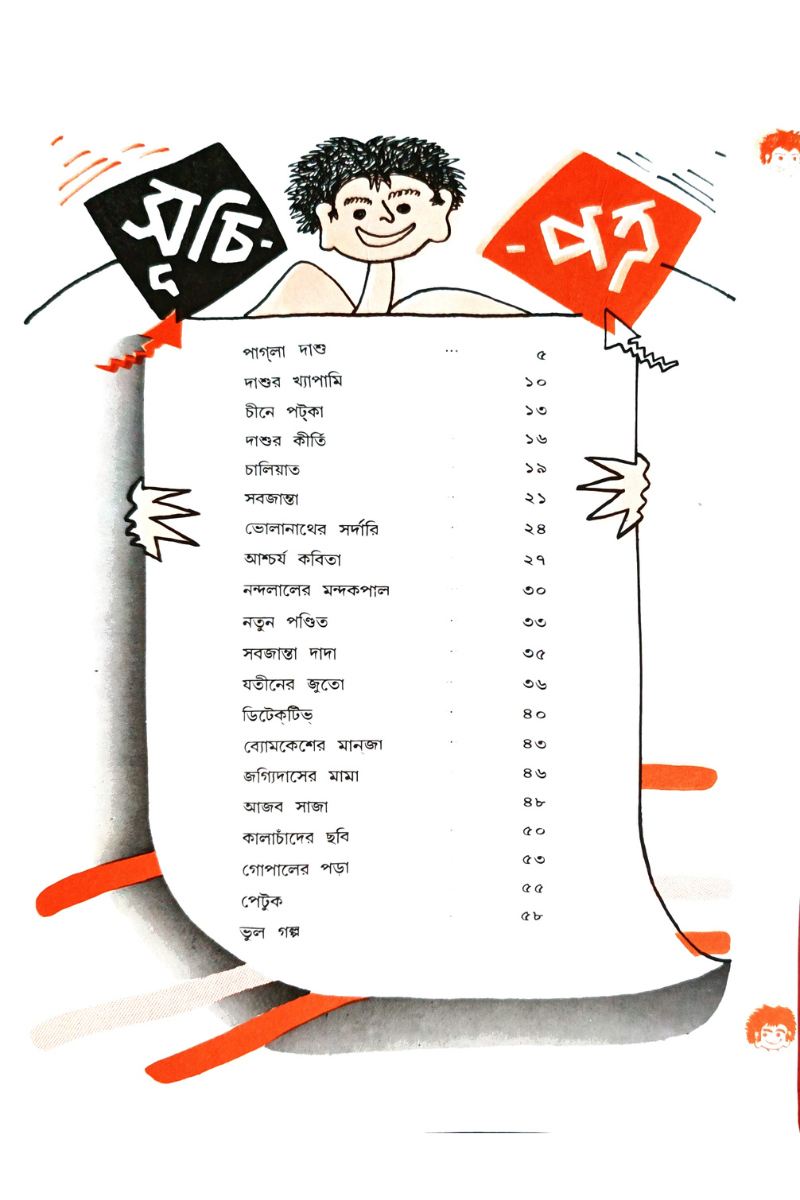 সূচি-
-পত্র
পাগ্‌লা দাশু ... ৫
দাশুর খ্যাপামি ১০
চীনে পট্‌কা ১৩
দাশুর কীর্তি ১৬
চালিয়াত ১৯
সবজান্তা ২১
ভোলানাথের সর্দারি ২৪
আশ্চর্য কবিতা ২৭
নন্দলালের মন্দকপাল ৩০
নতুন পণ্ডিত ৩৩
সবজান্তা দাদা ৩৫
যতীনের জুতো ৩৬
ডিটেক্‌টিভ্ ৪০
ব্যোমকেশের মান্‌জা ৪৩
জগ্যিদাসের মামা ৪৬
আজব সাজা ৪৮
কালাচাঁদের ছবি ৫০
গোপালের পড়া ৫৩
পেটুক ৫৫
ভুল গল্প ৫৮